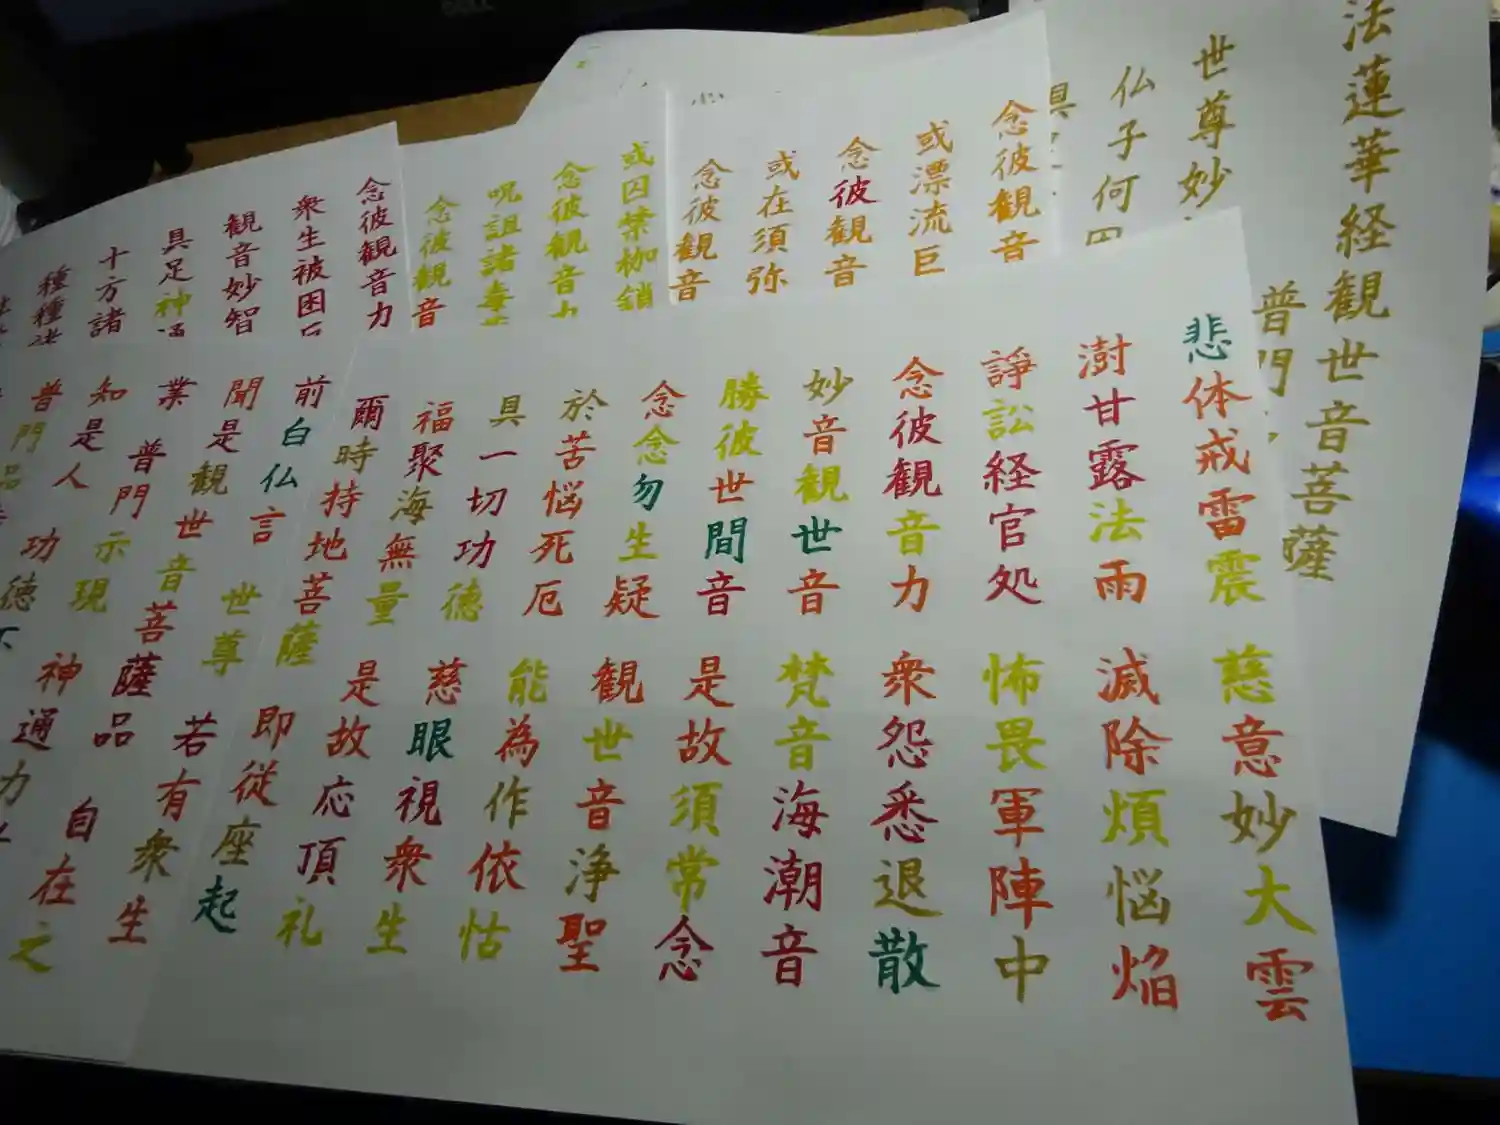 法蓮華経観世音菩薩
普門
世尊妙
仏子何
具
念彼観音
或漂流巨
念彼観音
或在須弥
念彼観音
或囚禁枷鎖
念彼観音力
呪詛諸毒
念彼観音
念彼観音力
衆生被困
観音妙智
具足神
十方諸
種種諸
悲体戒雷震 慈意妙大雲
澍甘露法雨 滅除煩悩焔
諍訟経官処 怖畏軍陣中
念彼観音力 衆怨悉退散
妙音観世音 梵音海潮音
勝彼世間音 是故須常念
念念勿生疑 観世音浄聖
於苦悩死厄 能為作依怙
具一切功徳 慈眼視衆生
福聚海無量 是故応頂礼
爾時持地菩薩 即従座起
前白仏言 世尊 若有衆生
聞是観世音菩薩品 自在之
業 普門示現 神通力
知是人 功徳不
普門品
DELL